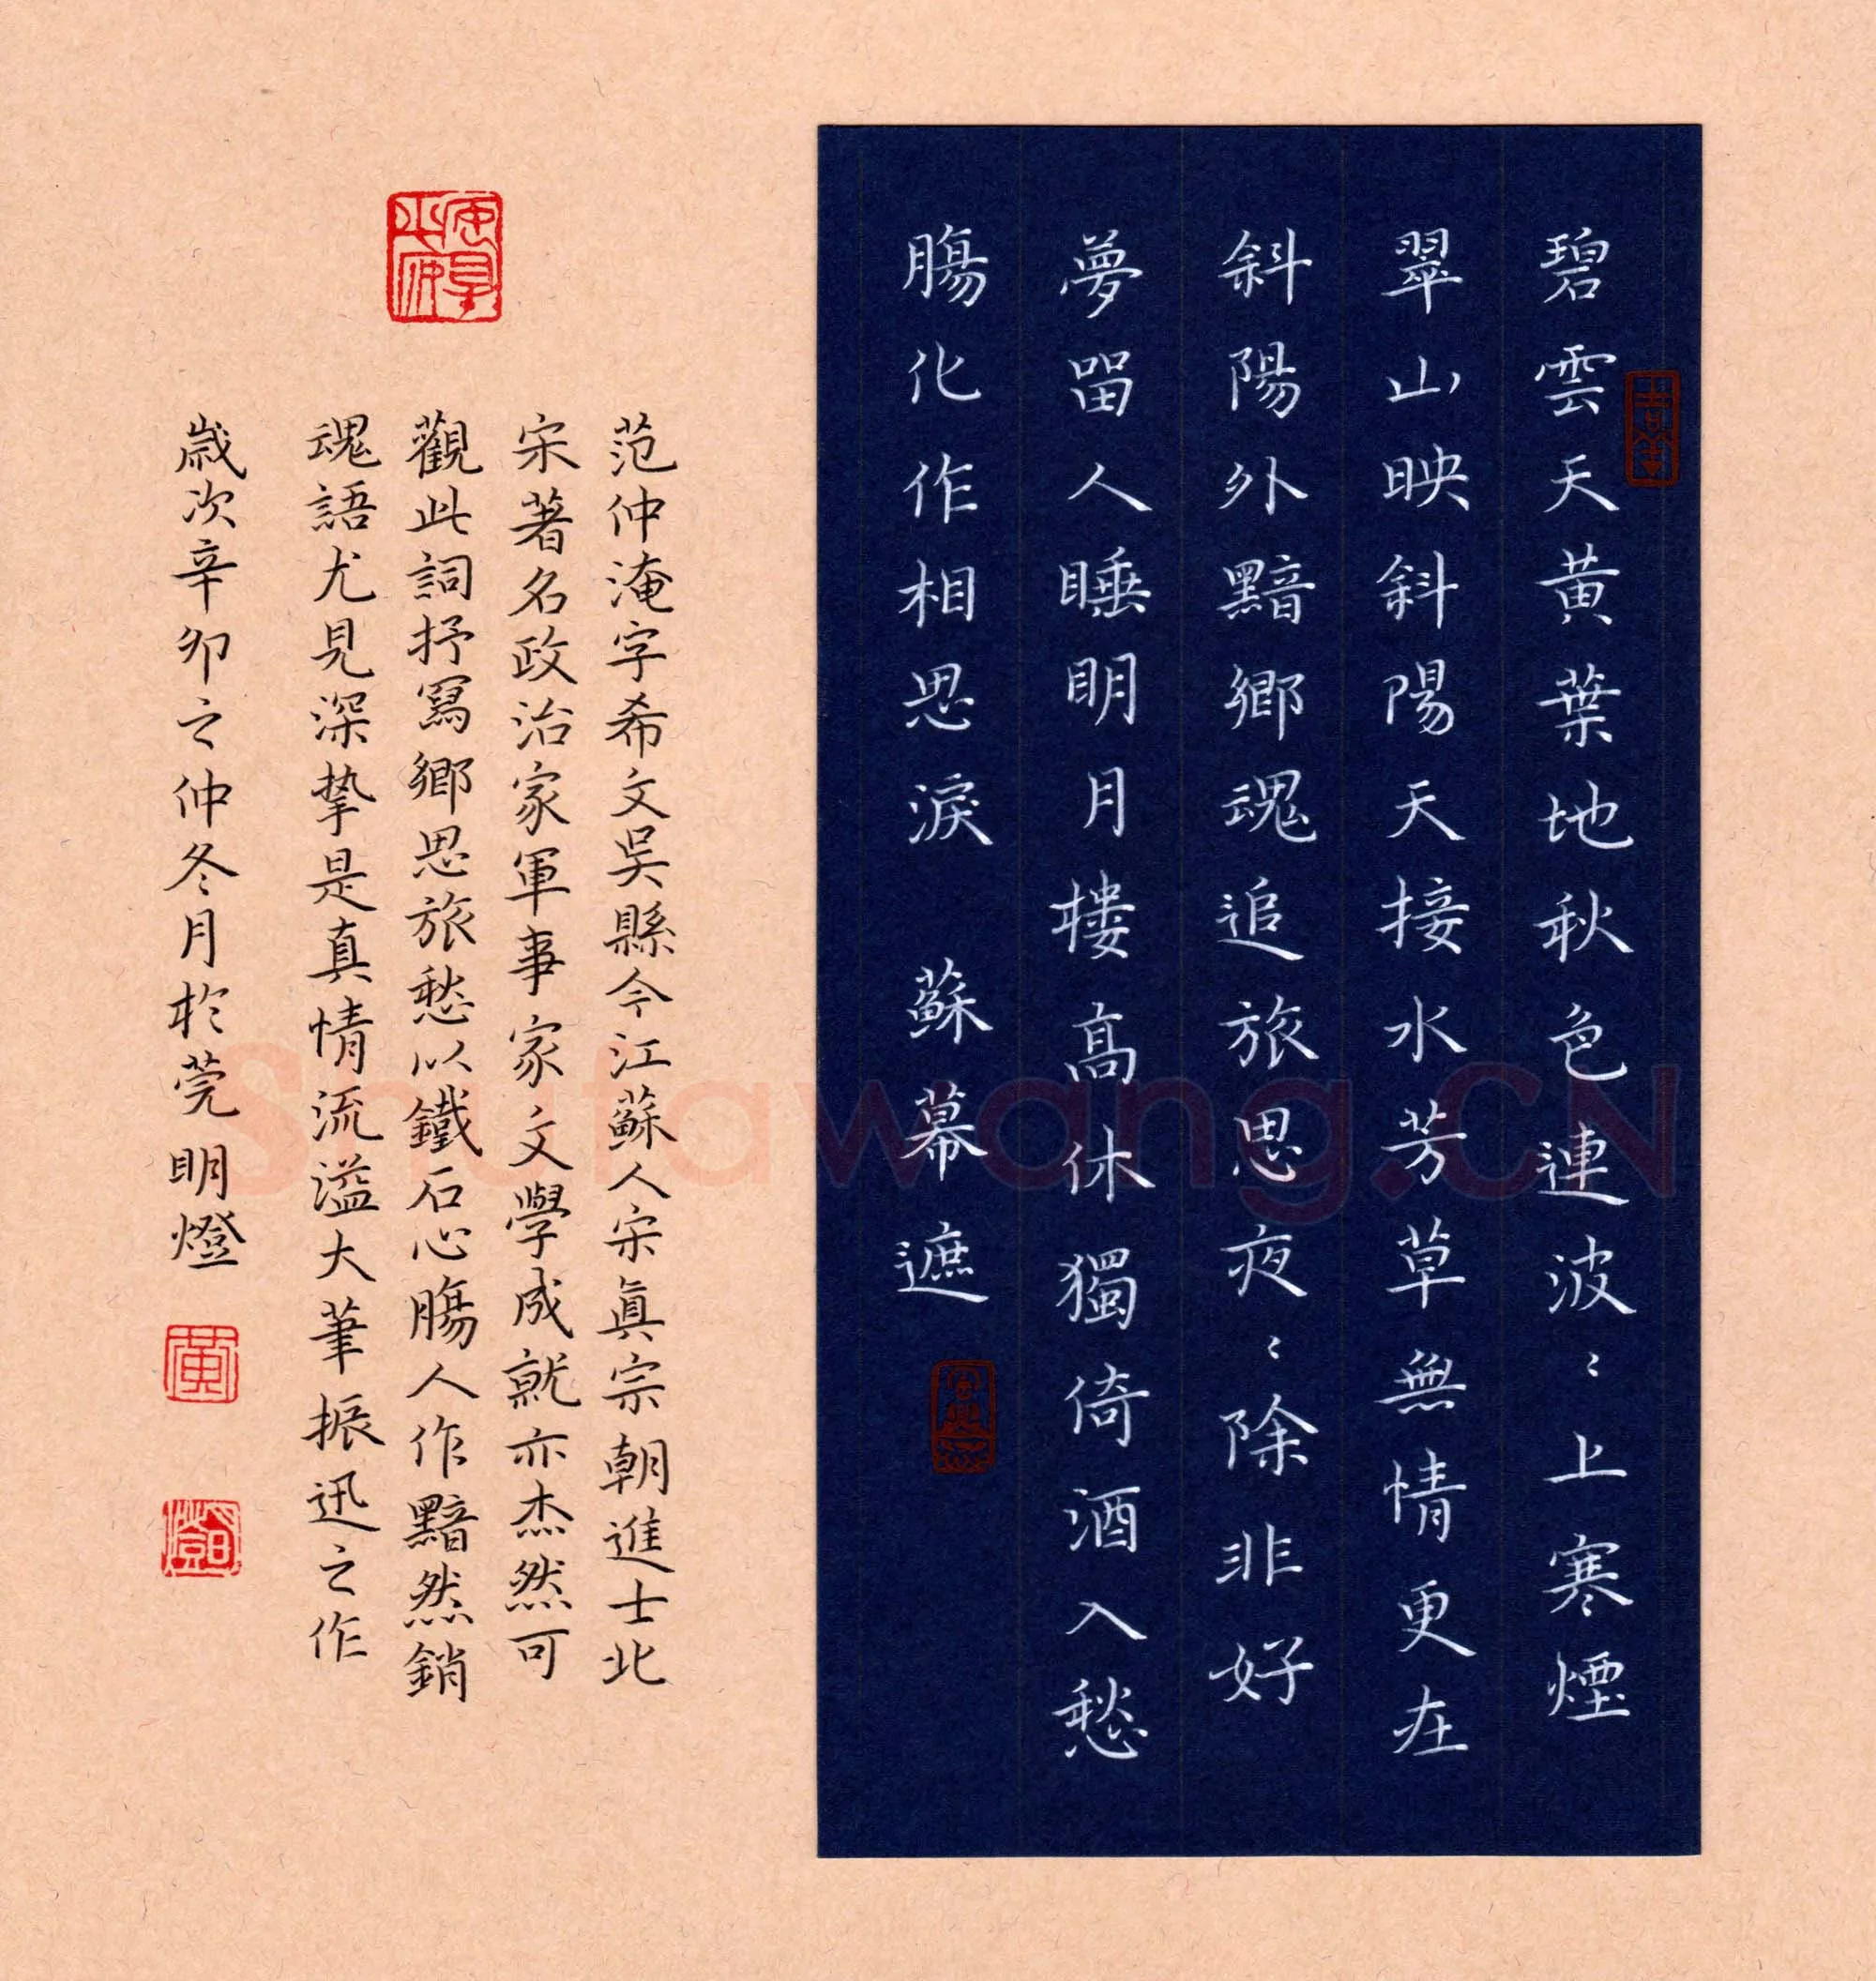 碧雲天黃葉地秋色連波〻上寒煙
翠山映斜陽天接水芳草無情更在
斜陽外黯鄉魂追旅思夜〻除非好
夢畱人睡明月樓高休獨倚酒入愁
腸化作相思淚 蘇幕遮
范仲淹字希文吳縣今江蘇人宋眞宗朝進士北
宋著名政治家軍事家文學成就亦杰然可
觀此詞抒寫鄉思旅愁以鐵石心腸人作黯然銷
魂語尤見深摯是真情流溢大筆振迅之作
歲次辛卯之仲冬月於莞明燈
黃
Shufawang.CN